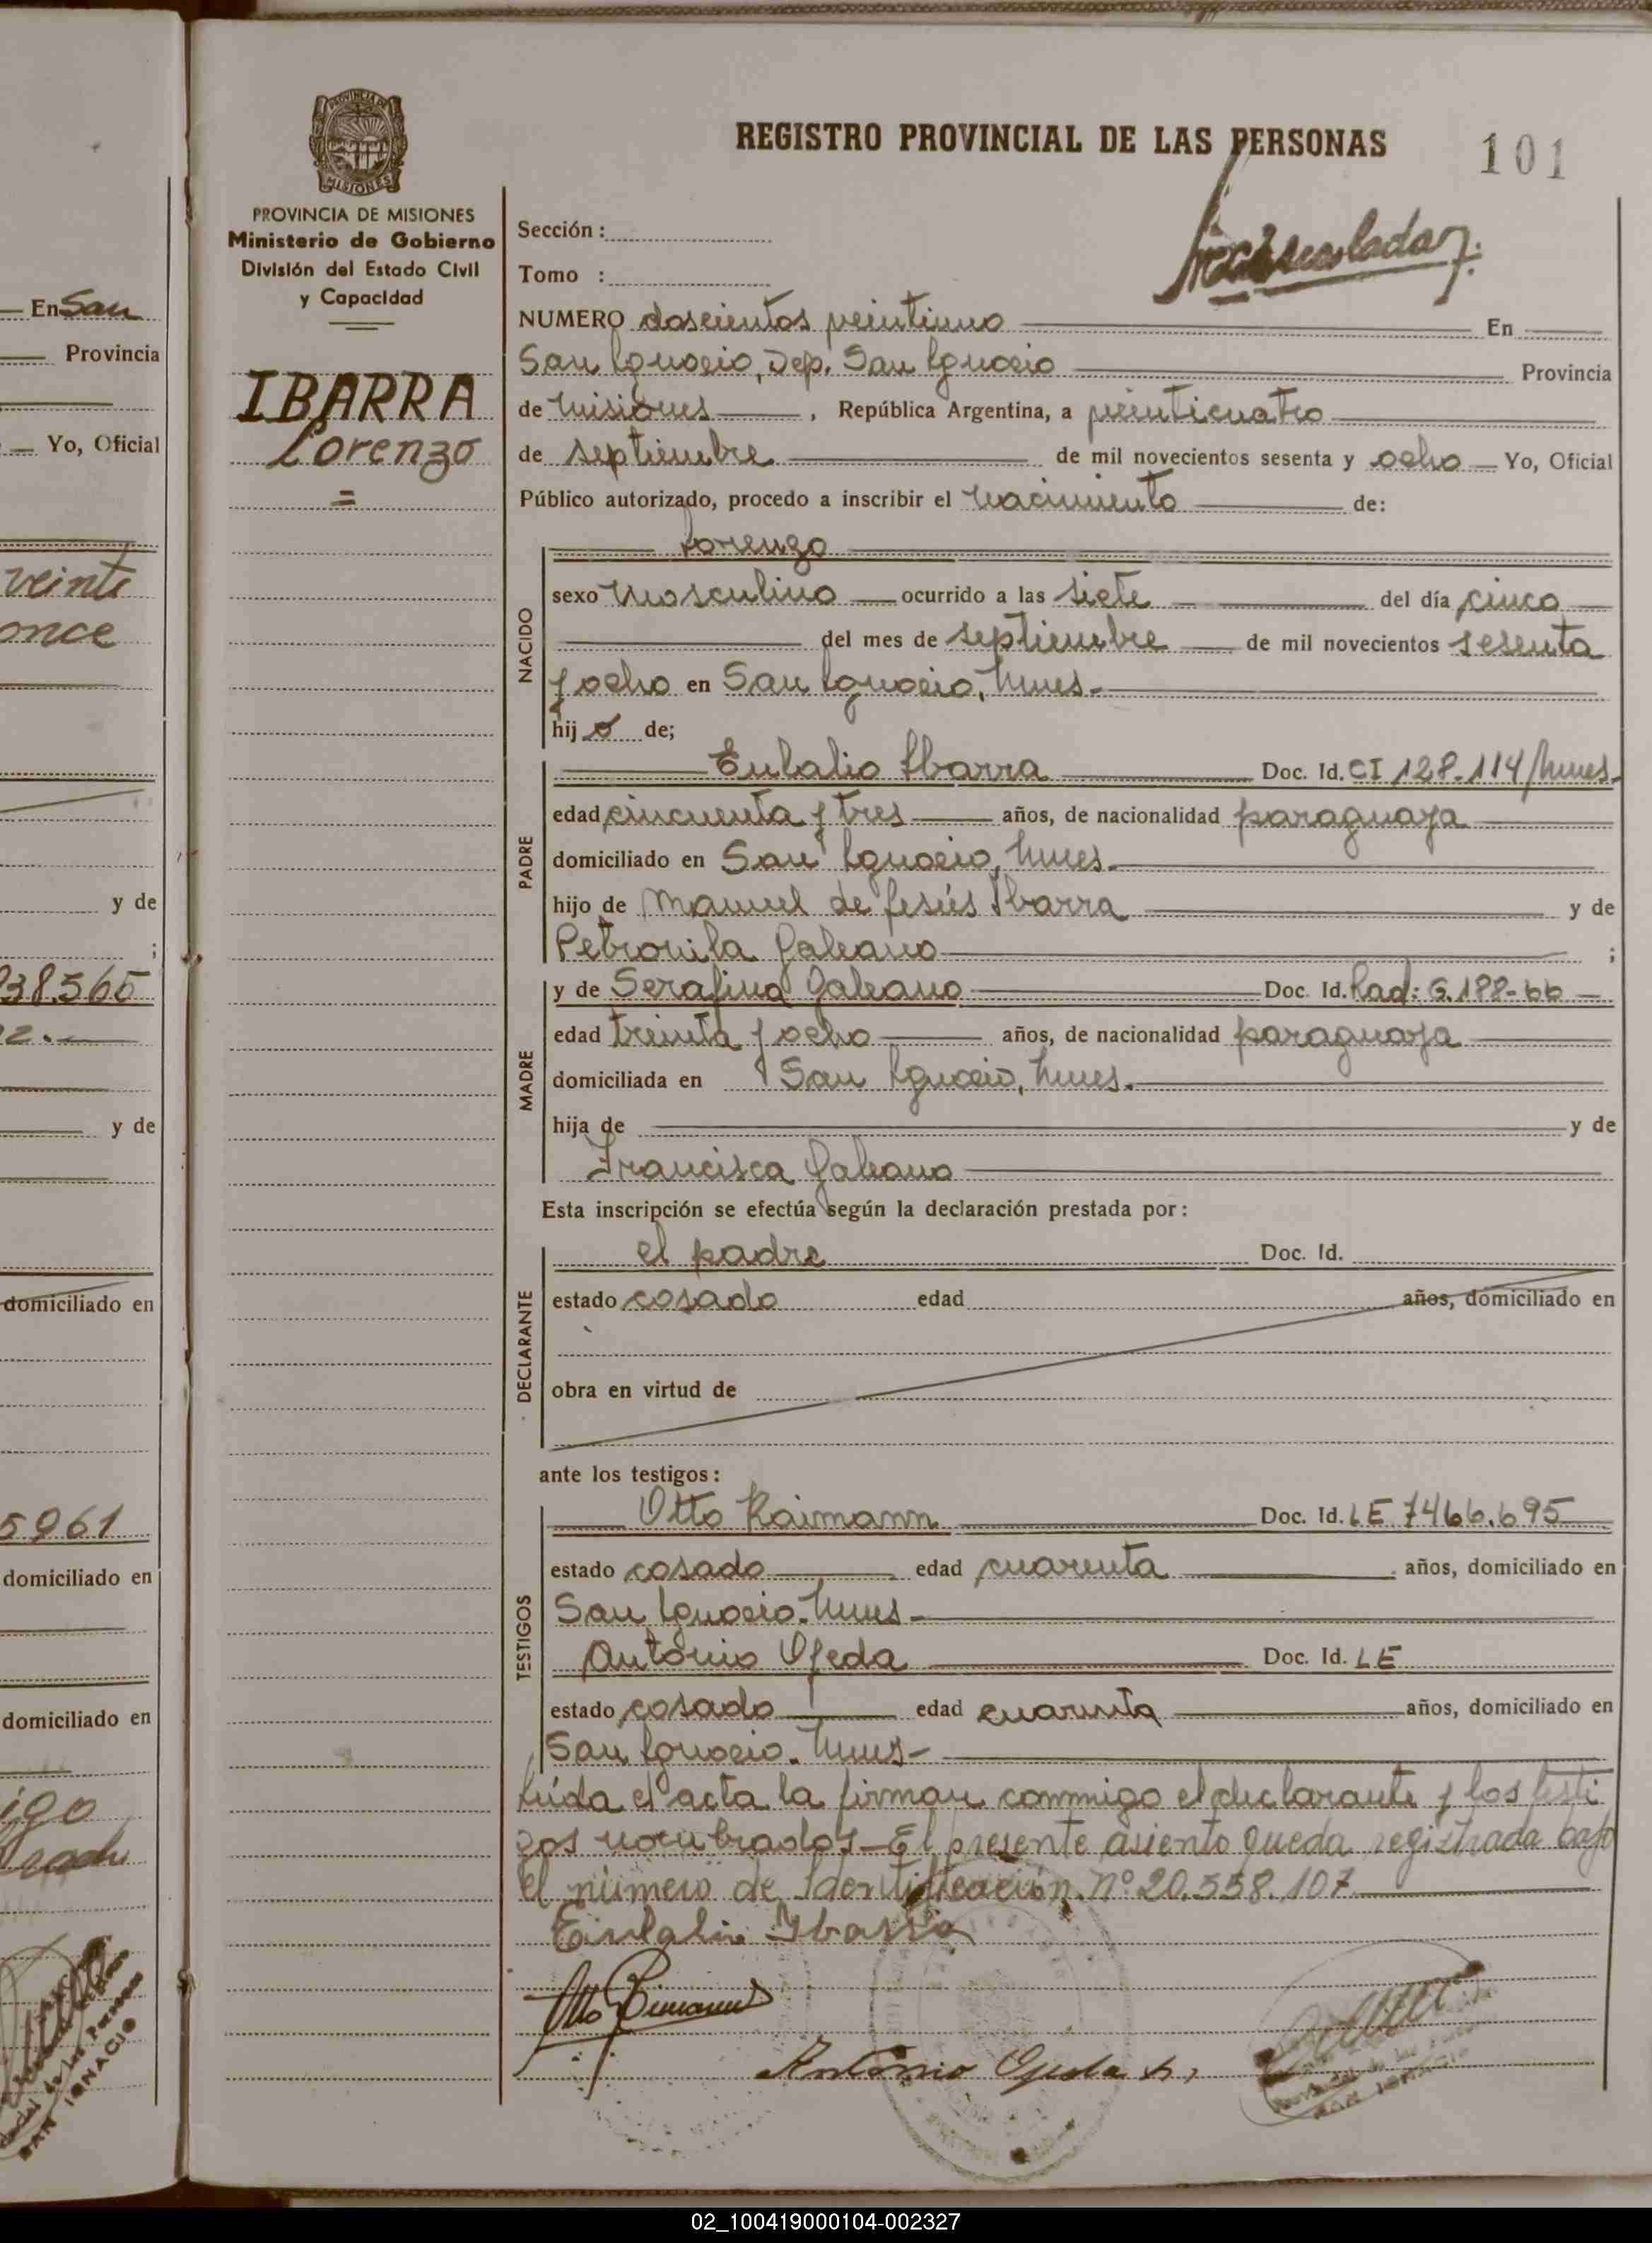 REGISTRO PROVINCIAL DE LAS PERSONAS
101
PROVINCIA DE MISIONES
Ministerio de Gobierno
División del Estado Civil
y Capacidad
IBARRA
Lorenzo
=
Sección :
Tomo :
NUMERO doscientos veintiuno En
San Ignacio, Dep. San Ignacio Provincia
de Misiones , República Argentina, a veinticuatro
de septiembre de mil novecientos sesenta y ocho Yo, Oficial
Público autorizado, procedo a inscribir el nacimiento de:
NACIDO
Lorenzo
sexo Masculino ocurrido a las siete del día cinco
del mes de septiembre de mil novecientos sesenta
y ocho en San Ignacio, Mnes.
hijo de;
PADRE
Eulalio Ibarra Doc. Id. CI 128.114/Mnes.
edad cincuenta y tres años, de nacionalidad paraguaya
domiciliado en San Ignacio, Mnes.
hijo de Manuel de Jesús Ibarra y de
Petronila Galeano ;
MADRE
y de Serafina Galeano Doc. Id. Rad: G.188-66
edad treinta y ocho años, de nacionalidad paraguaya
domiciliada en San Ignacio, Mnes.
hija de y de
Francisca Galeano
Esta inscripción se efectúa según la declaración prestada por:
DECLARANTE
el padre Doc. Id.
estado casado edad años, domiciliado en
obra en virtud de
ante los testigos:
TESTIGOS
Otto Raimann Doc. Id. LE 7466.695
estado casado edad cuarenta años, domiciliado en
San Ignacio. Mnes.
Antonio Ojeda Doc. Id. LE
estado casado edad cuarenta años, domiciliado en
San Ignacio. Mnes.
Leída el acta la firman conmigo el declarante y los testi
gos nombrados - El presente asiento queda registrada bajo
el número de Identificación. Nº 20.558.107
Eulalio Ybarra
Otto
Antonio Ojeda h,
SAN IGNACIO
En San
Provincia
Yo, Oficial
veinte
once
y de
;
38.565
2.
y de
domiciliado en
5961
domiciliado en
domiciliado en
igo
SAN IGNACIO
02_100419000104-002327